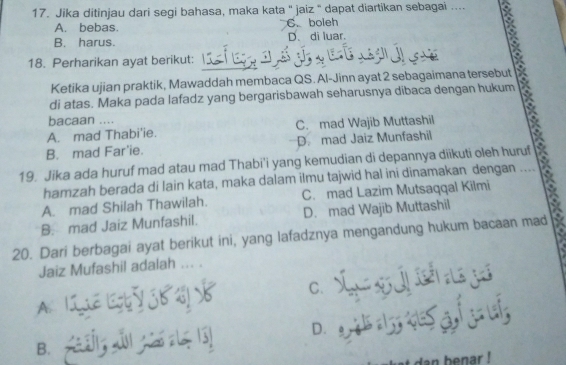 17. Jika ditinjau dari segi bahasa, maka kata " jaiz " dapat diartikan sebagai ....
A. bebas. C. boleh
B. harus. D. di luar.
18. Perharikan ayat berikut: يَهْدِي إِلَى الرُّشْدِ فَآمَنَّا بِهِ وَلَنْ نُشْرِكَ بِرَبِّنَا أَحَدًا
Ketika ujian praktik, Mawaddah membaca QS. Al-Jinn ayat 2 sebagaimana tersebut
di atas. Maka pada lafadz yang bergarisbawah seharusnya dibaca dengan hukum
bacaan ....
A. mad Thabi'ie. C. mad Wajib Muttashil
B. mad Far'ie. D. mad Jaiz Munfashil
19. Jika ada huruf mad atau mad Thabi'i yang kemudian di depannya diikuti oleh huruf
hamzah berada di lain kata, maka dalam ilmu tajwid hal ini dinamakan dengan ....
A. mad Shilah Thawilah. C. mad Lazim Mutsaqqal Kilmi
B. mad Jaiz Munfashil. D. mad Wajib Muttashil
20. Dari berbagai ayat berikut ini, yang lafadznya mengandung hukum bacaan mad
Jaiz Mufashil adalah ... .
A. كَلَّا إِنَّهُ كَانَ لِآيَاتِنَا عَنِيدًا C. فَمَنْ شَاءَ اتَّخَذَ إِلَى رَبِّهِ سَبِيلًا
B. إِذَا جَاءَ نَصْرُ اللَّهِ وَالْفَتْحُ D. وَأَمَّا مَنْ أُوتِيَ كِتَابَهُ وَرَاءَ ظَهْرِهِ
dan benar !